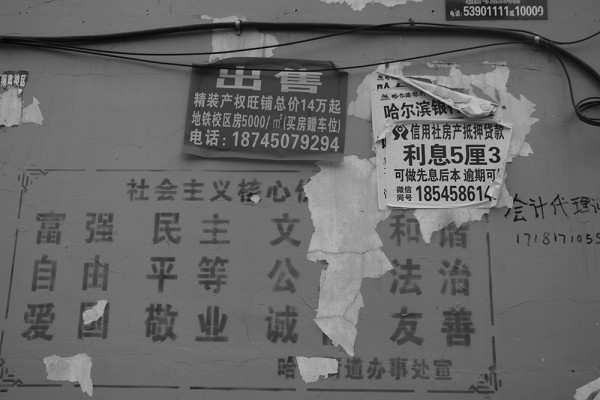 电话:53901111或10009
出售
精装产权旺铺总价14万起
地铁校区房5000/㎡(买房赠车位)
电话:18745079294
哈尔滨银
信用社房产抵押贷款
利息5厘3
可做先息后本 逾期可
微信同号 185458614
社会主义核心
富强 民主 文 和谐
自由 平等 公 法治
爱国 敬业 诚 友善
哈 街道办事处宣
会计代理记
171817105